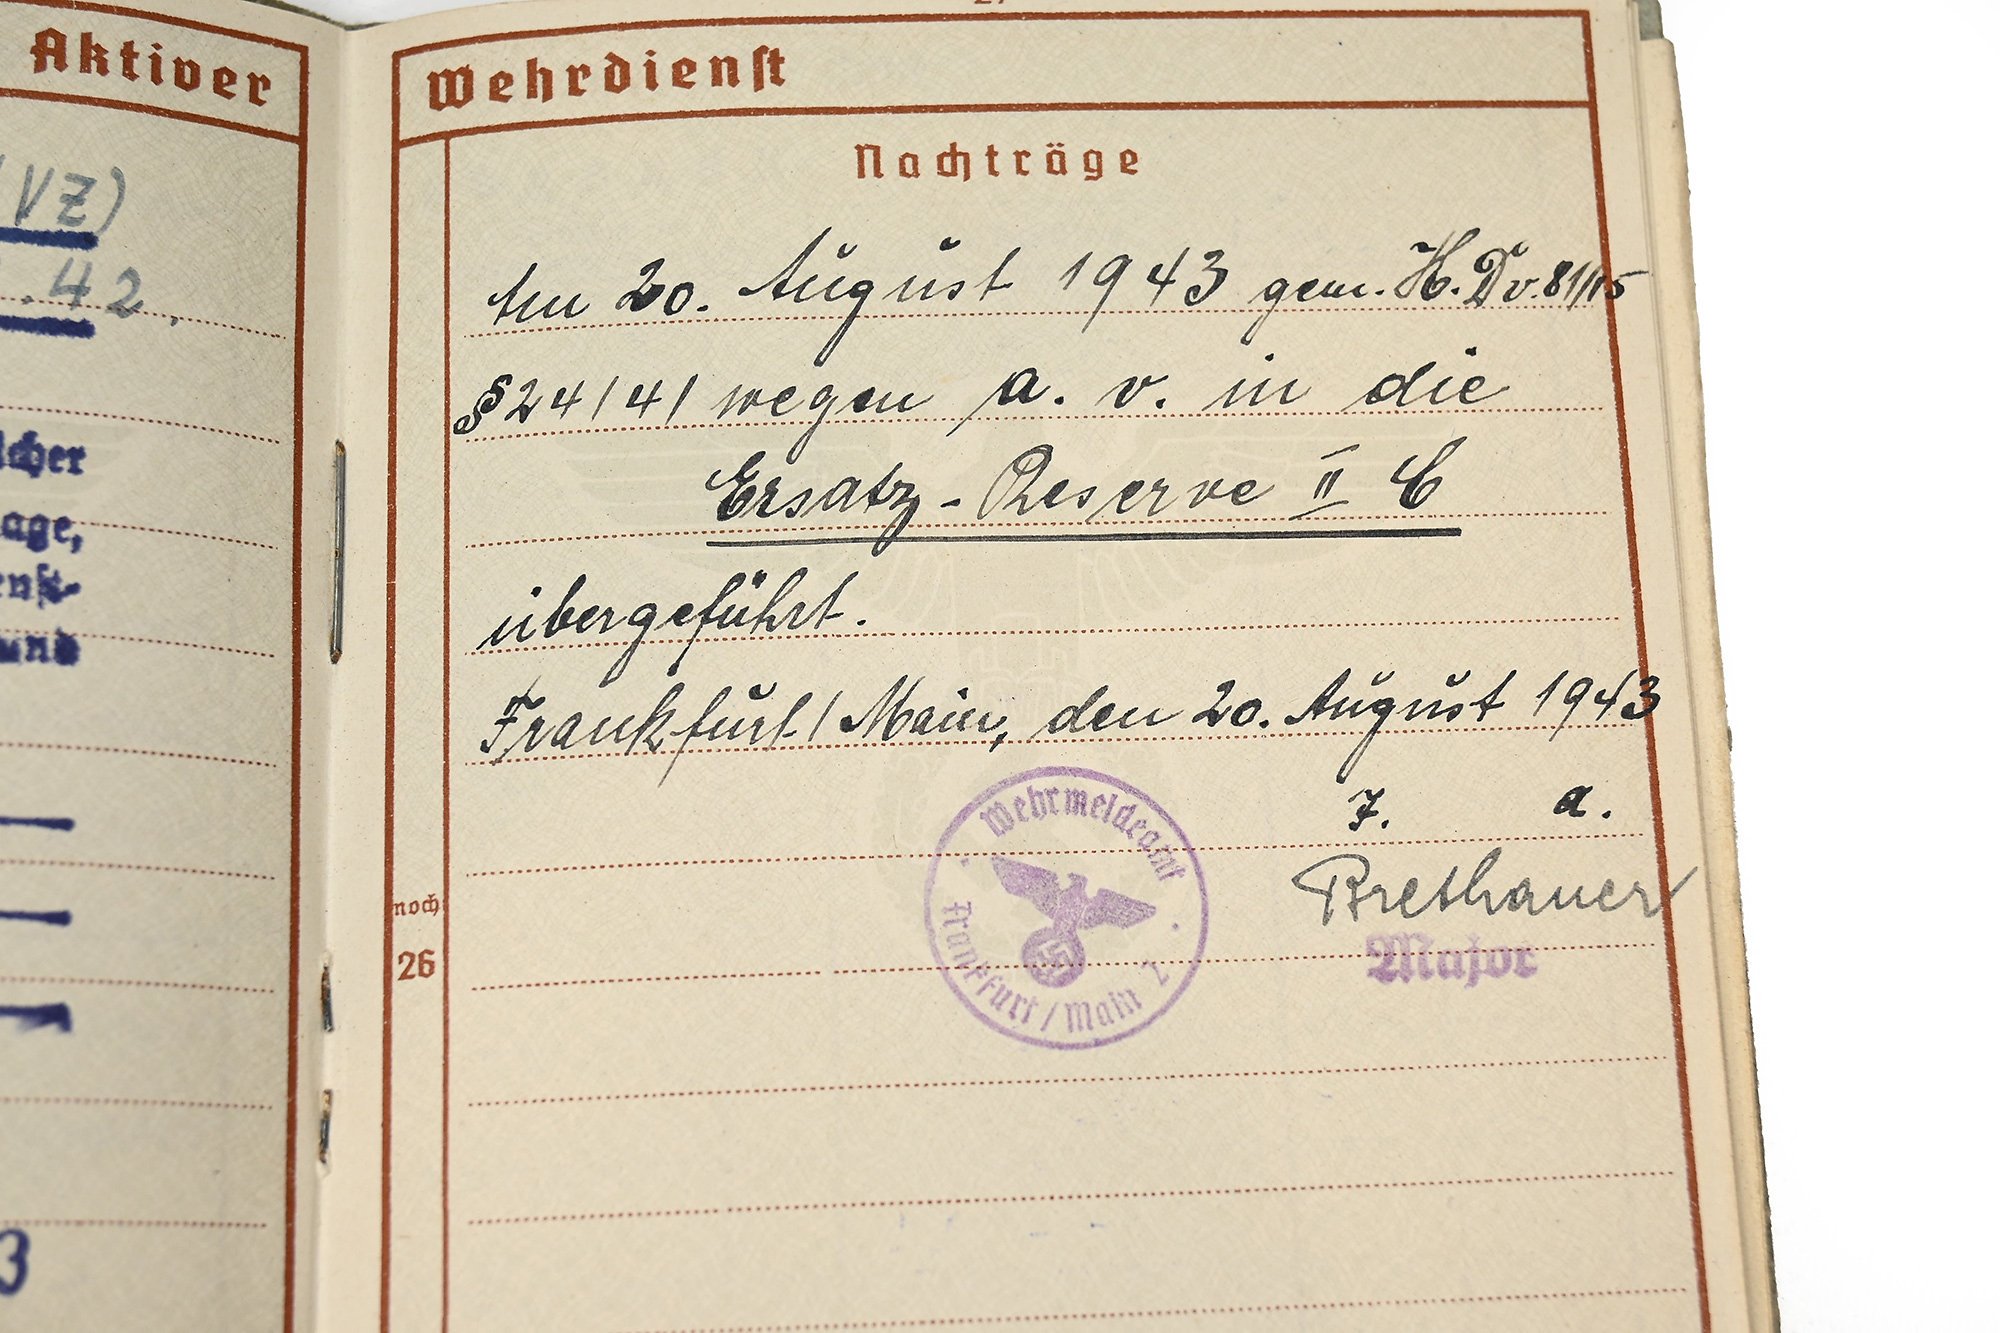 Aktiver
VZ)
.42.
age,
und
3
Wehrdienst
Nachträge
Am 20. August 1943 gem. H.Dv. 81/15
§ 24/4/ wegen a. v. in die
Ersatz-Reserve II C
übergeführt.
Frankfurt/Main, den 20. August 1943
J. a.
Brethauer
Major
Wehrmeldeamt
Frankfurt/Main 2
noch
26